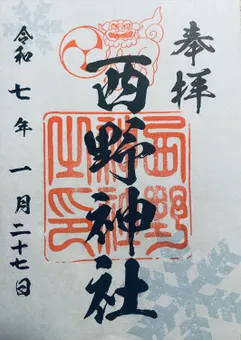 奉拝
西野神社
西野神社之印
令和七年一月二十七日